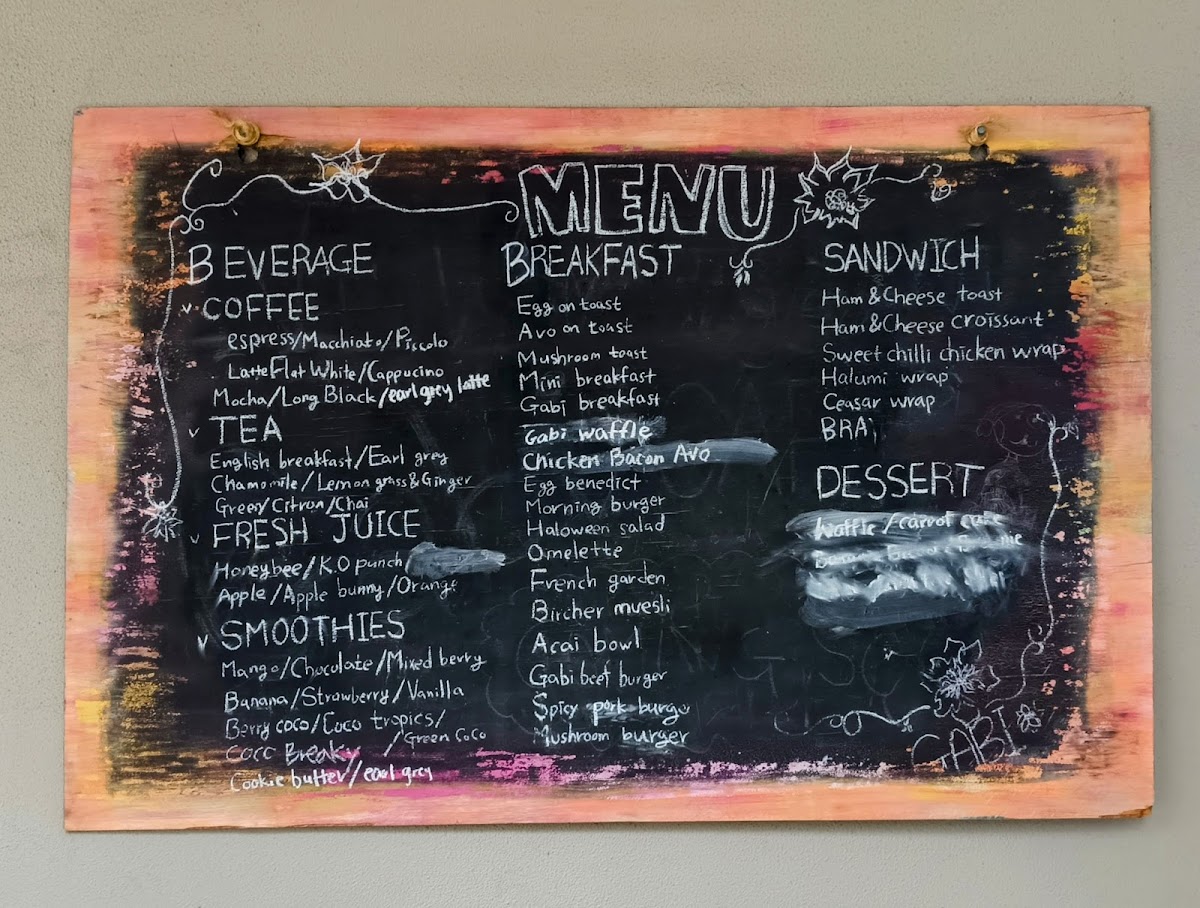 MENU
BEVERAGE
COFFEE
espress/Macchiato/Piccolo
Latte Flat White/Cappucino
Mocha/Long Black/earl grey latte
TEA
English breakfast/Earl grey
Chamomile/Lemon grass & Ginger
Green/Citron/Chai
FRESH JUICE
Honeybee/K.O punch
Apple/Apple bunny/Orange
SMOOTHIES
Mango/Chocolate/Mixed berry
Banana/Strawberry/Vanilla
Berry coco/Coco tropics/
Coco Breaky /Green Coco
Cookie butter/earl grey
BREAKFAST
Egg on toast
Avo on toast
Mushroom toast
Mini breakfast
Gabi breakfast
Gabi waffle
Chicken Bacon Avo
Egg benedict
Morning burger
Haloween salad
Omelette
French garden
Bircher muesli
Acai bowl
Gabi beef burger
Spicy pork burge
Mushroom burger
SANDWICH
Ham & Cheese toast
Ham & Cheese croissant
Sweet chilli chicken wrap
Halumi wrap
Ceasar wrap
DESSERT
Waffle/carrot cake
GABI